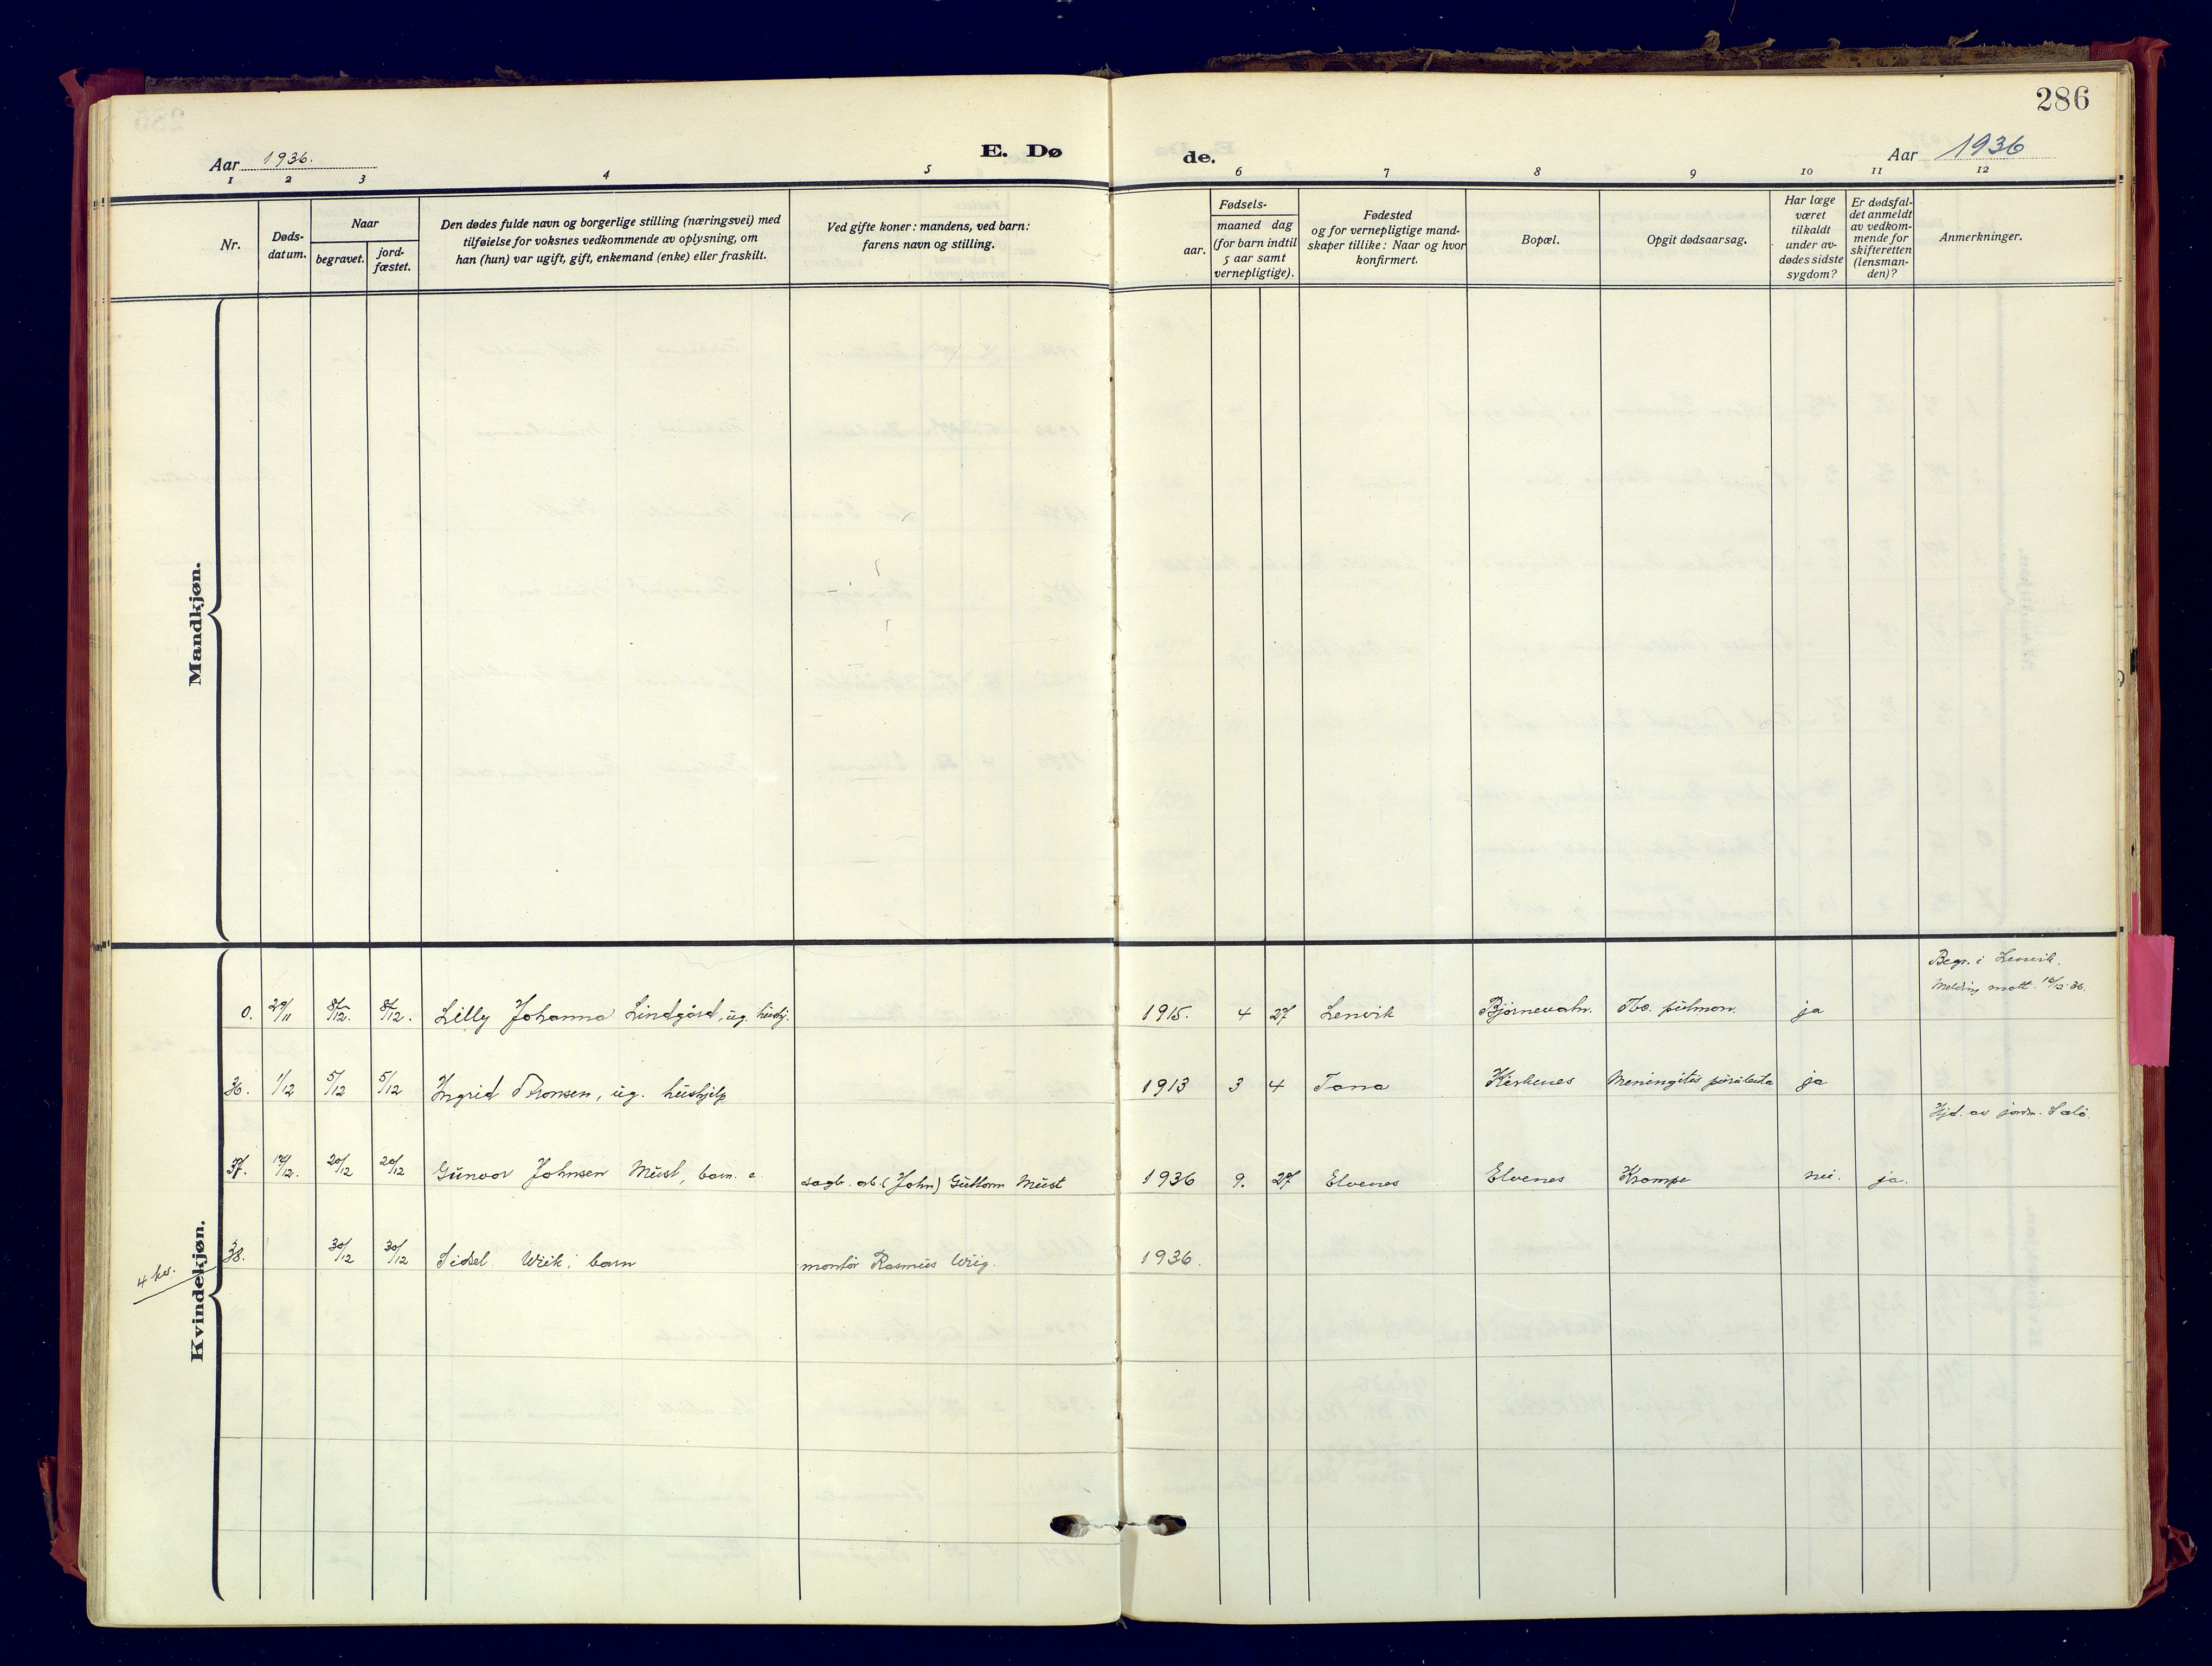 286
Aar 1936.
E. Dø
de.
Aar 1936
1 2 3 4 5 6 7 8 9 10 11 12
Nr.
Døds-
datum.
Naar
begravet.
jord-
fæstet.
Den dødes fulde navn og borgerlige stilling (næringsvei) med
tilføielse for voksnes vedkommende av oplysning, om
han (hun) var ugift, gift, enkemand (enke) eller fraskilt.
Ved gifte koner: mandens, ved barn:
farens navn og stilling.
Fødsels-
aar.
maaned dag
(for barn indtil
5 aar samt
vernepligtige).
Fødested
og for vernepligtige mand-
skaper tillike: Naar og hvor
konfirmert.
Bopæl.
Opgit dødsaarsag.
Har læge
været
tilkaldt
under av-
dødes sidste
sygdom?
Er dødsfal-
det anmeldt
av vedkom-
mende for
skifteretten
(lensman-
den)?
Anmerkninger.
Mandkjøn.
Kvindekjøn.
4 kv.
Begr. i Lenvik.
Melding mott. 16/12-36.
0. 29/11 8/12. 8/12. Lilly Johanna Lindgård, ug. hushj. 1915. 4 27 Lenvik Bjørnevatn. Tbc. pulmon. ja
36. 1/12 5/12 5/12 Ingrid Thronsen, ug. hushjelp 1913 3 4 Tana Kirkenes Meningitis purulenta ja
Hjd. av jordm. Salo.
37. 12. 20/12 20/12 Gunvor Johnsen Must, barn. e. sagbr. arb. (John) Guttorm Must 1936 9. 27 Elvenes Elvenes Krampe nei. ja.
38. 30/12 30/12 Sidsel Wiik, barn montør Rasmus Wiig. 1936.